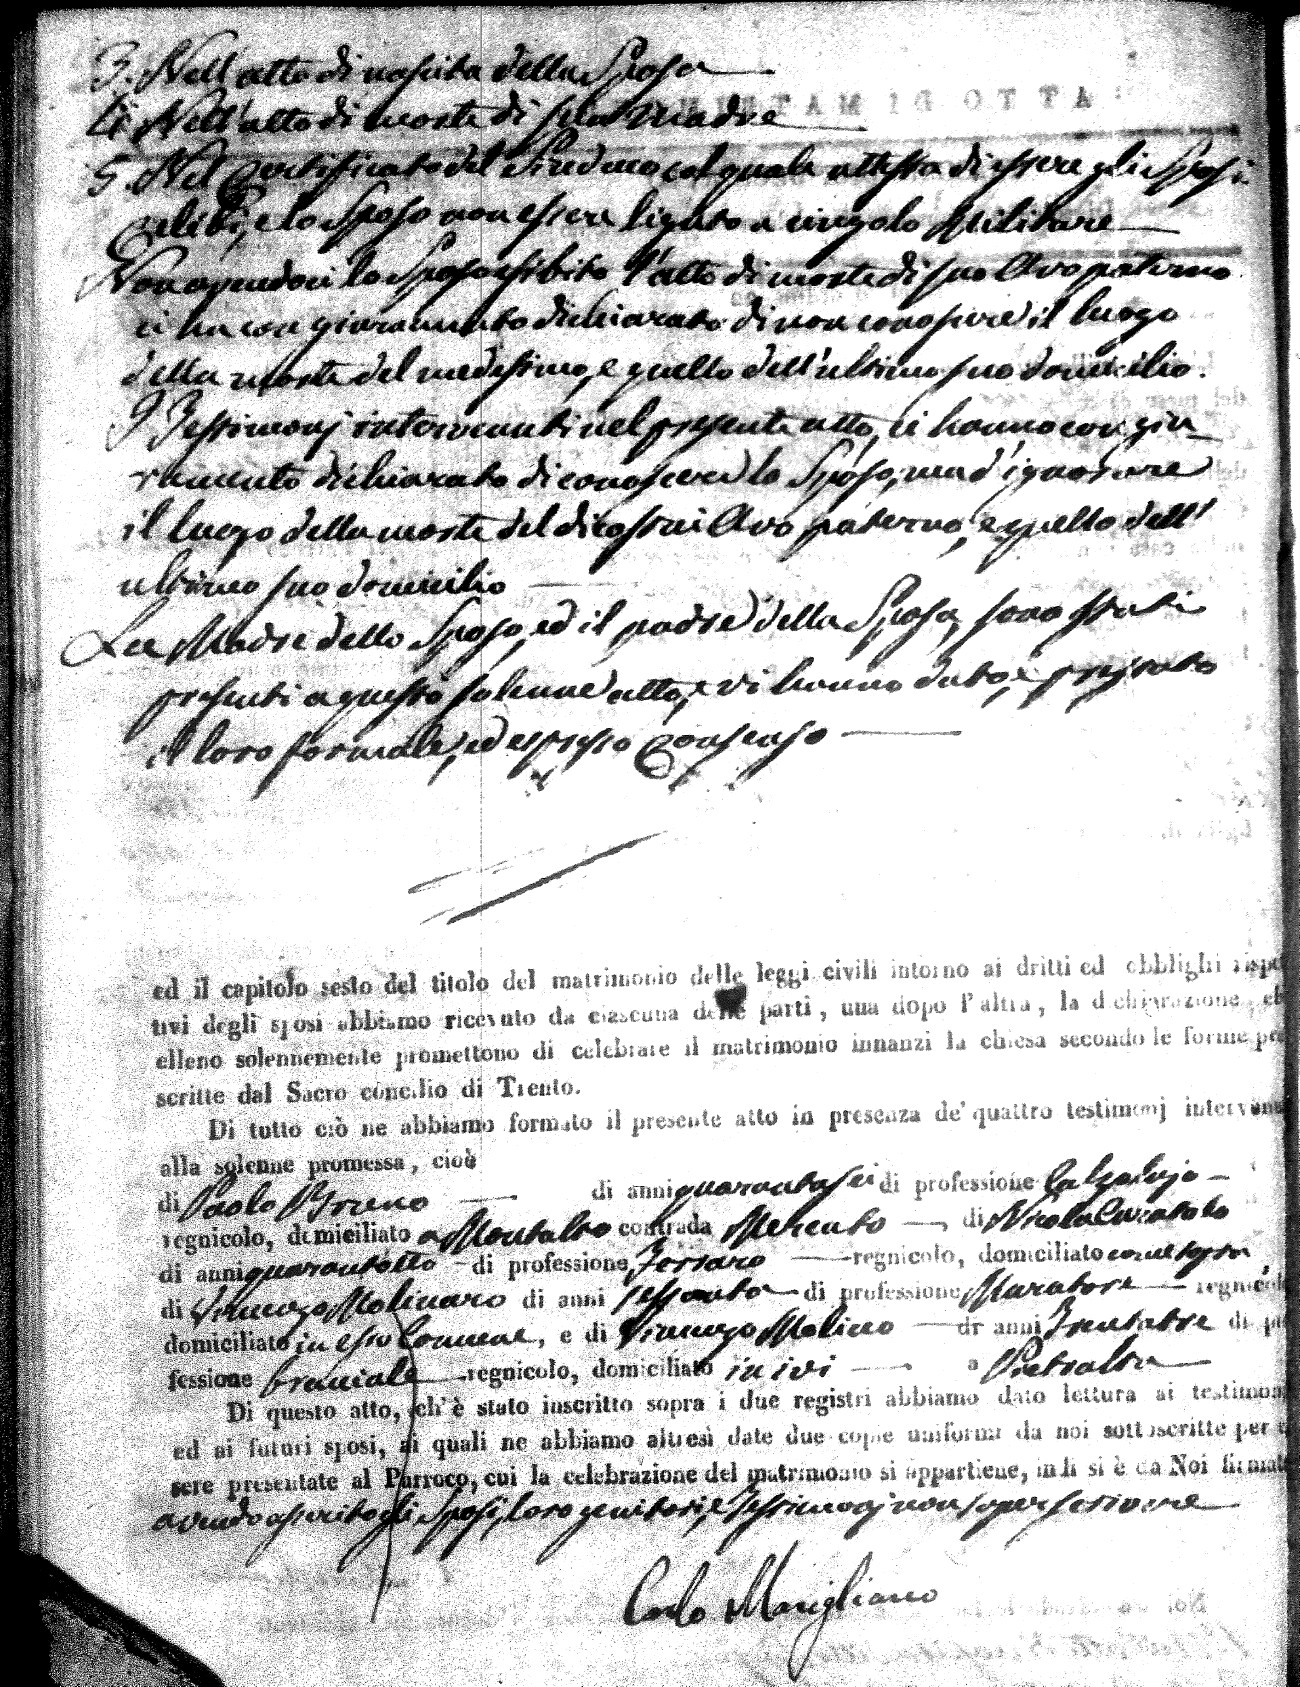 3. Nell'atto di nascita della Sposa
4. Nell'atto di morte di sua Madre
5. Nel Certificato del Sindaco col quale attessa di essere gli Sposi
Celibi, e lo Sposo non essere ligato a vingolo Militare
Non avendoci lo Sposo esibito l'atto di morte di suo Avo paterno
ci ha con giuramento dichiarato di non conoscere il luogo
della morte del medesimo, e quello dell'ultimo suo domicilio.
I Tessimonj intervenuti nel presente atto, ci hanno con giu-
ramento dichiarato di conoscere lo Sposo, ma d'ignorare
il luogo della morte del di costui Avo paterno, e quello dell'
ultimo suo domicilio
La Madre dello Sposo, ed il padre della Sposa, sono stati
presenti a questo solenne atto, e vi hanno dato, e pressato
il loro formale, ed espresso Consenso
ed il capitolo sesto del titolo del matrimonio delle leggi civili intorno ai dritti ed obblighi rispe
tivi degli sposi abbiamo ricevuto da ciascuna delle parti, una dopo l'altra, la dichiarazione, ch
elleno solennemente promettono di celebrare il matrimonio innanzi la chiesa secondo le forme pre
scritte dal Sacro concilio di Trento.
Di tutto ciò ne abbiamo formato il presente atto in presenza de' quattro testimonj intervenu
alla solenne promessa, cioè
di Paolo Bruno di anni quarantasei di professione Calzolajo
regnicolo, domiciliato a Montalto contrada Mercato di Nicola
di anni quarantotto di professione Ferraro regnicolo, domiciliato come sopra
di Vincenzo Molinaro di anni sessanta di professione Muratore regnicolo
domiciliato in esso Comune, e di Vincenzo Molino di anni Trentatre di pro
fessione braciale regnicolo, domiciliato in ivi a Pietralta
Di questo atto, ch'è stato inscritto sopra i due registri abbiamo dato lettura ai testimon
ed ai futuri sposi, ai quali ne abbiamo altresì date due copie uniformi da noi sottoscritte per e
sere presentate al Parroco, cui la celebrazione del matrimonio si appartiene, indi si è da Noi firmat
avendo asserito gli Sposi, loro genitori, e Tessimonj non saper scrivere
Carlo Marigliano